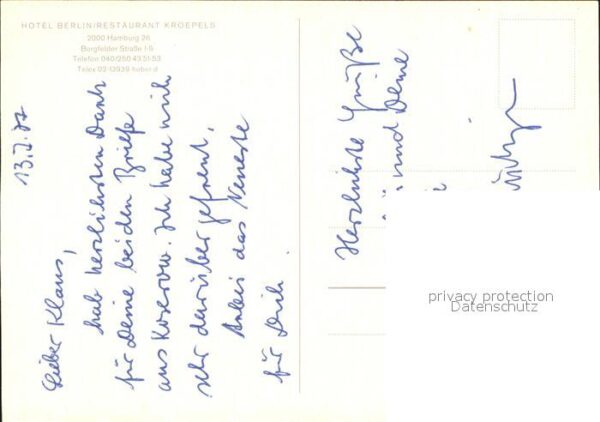 HOTEL BERLIN/RESTAURANT KROEPELS
2000 Hamburg 26
Borgfelder Straße 1-9
Telefon 040/250 43 51-53
Telex 02-13939 hober d
13.2.77
Lieber Klaus,
hab herzlichsten Dank
für Deine beiden Briefe
aus Koserow. Ich habe mich
sehr darüber gefreut.
Anbei das Neueste
für Dich.
Herzlichste Grüße
und Deine
privacy protection
Datenschutz